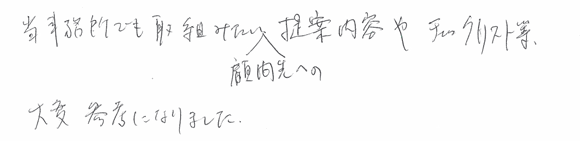 当事務所でも取組みたい提案内容や チェックリスト等、
顧問先への
大変 参考になりました.